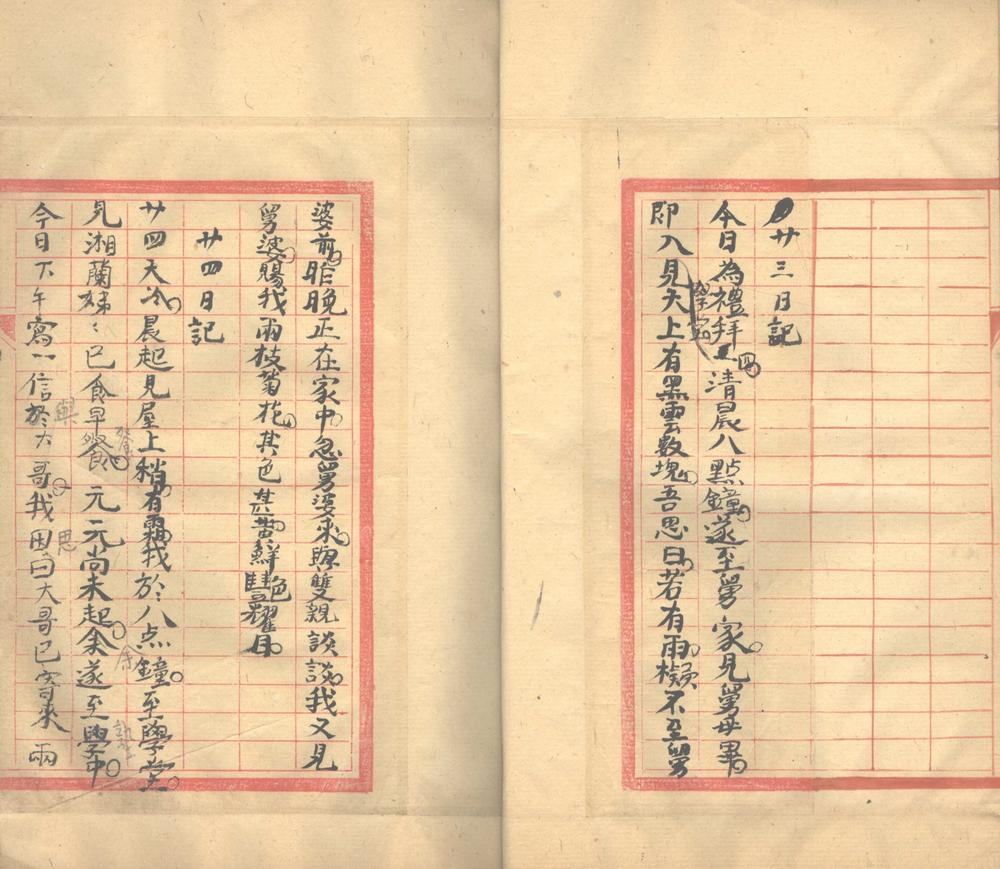 廿三日記
今日為禮拜四清晨八點鐘遂至舅家見舅母畢
即入學堂見天上有黑雲數塊吾思曰若有雨擬不至舅
婆前昨晚正在家中忽舅婆來與雙親談談我又見
舅婆賜我兩枝菊花其色甚黃鮮豔耀目
廿四日記
廿四天冷晨起見屋上稍有霜我於八点鐘至學堂
見湘蘭娣〻已食早餐元元尚未起余遂至學中
今日下午寫一信於大哥我因曰大哥已寄來兩
與
思
余
塾